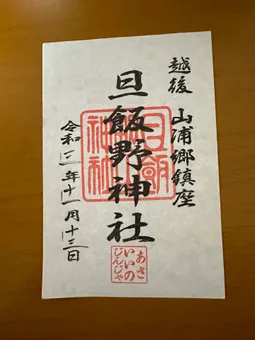 越後 山浦郷鎮座
旦飯野神社
令和二年十一月十三日
旦飯野神社
あさ
いいの
じんじゃ